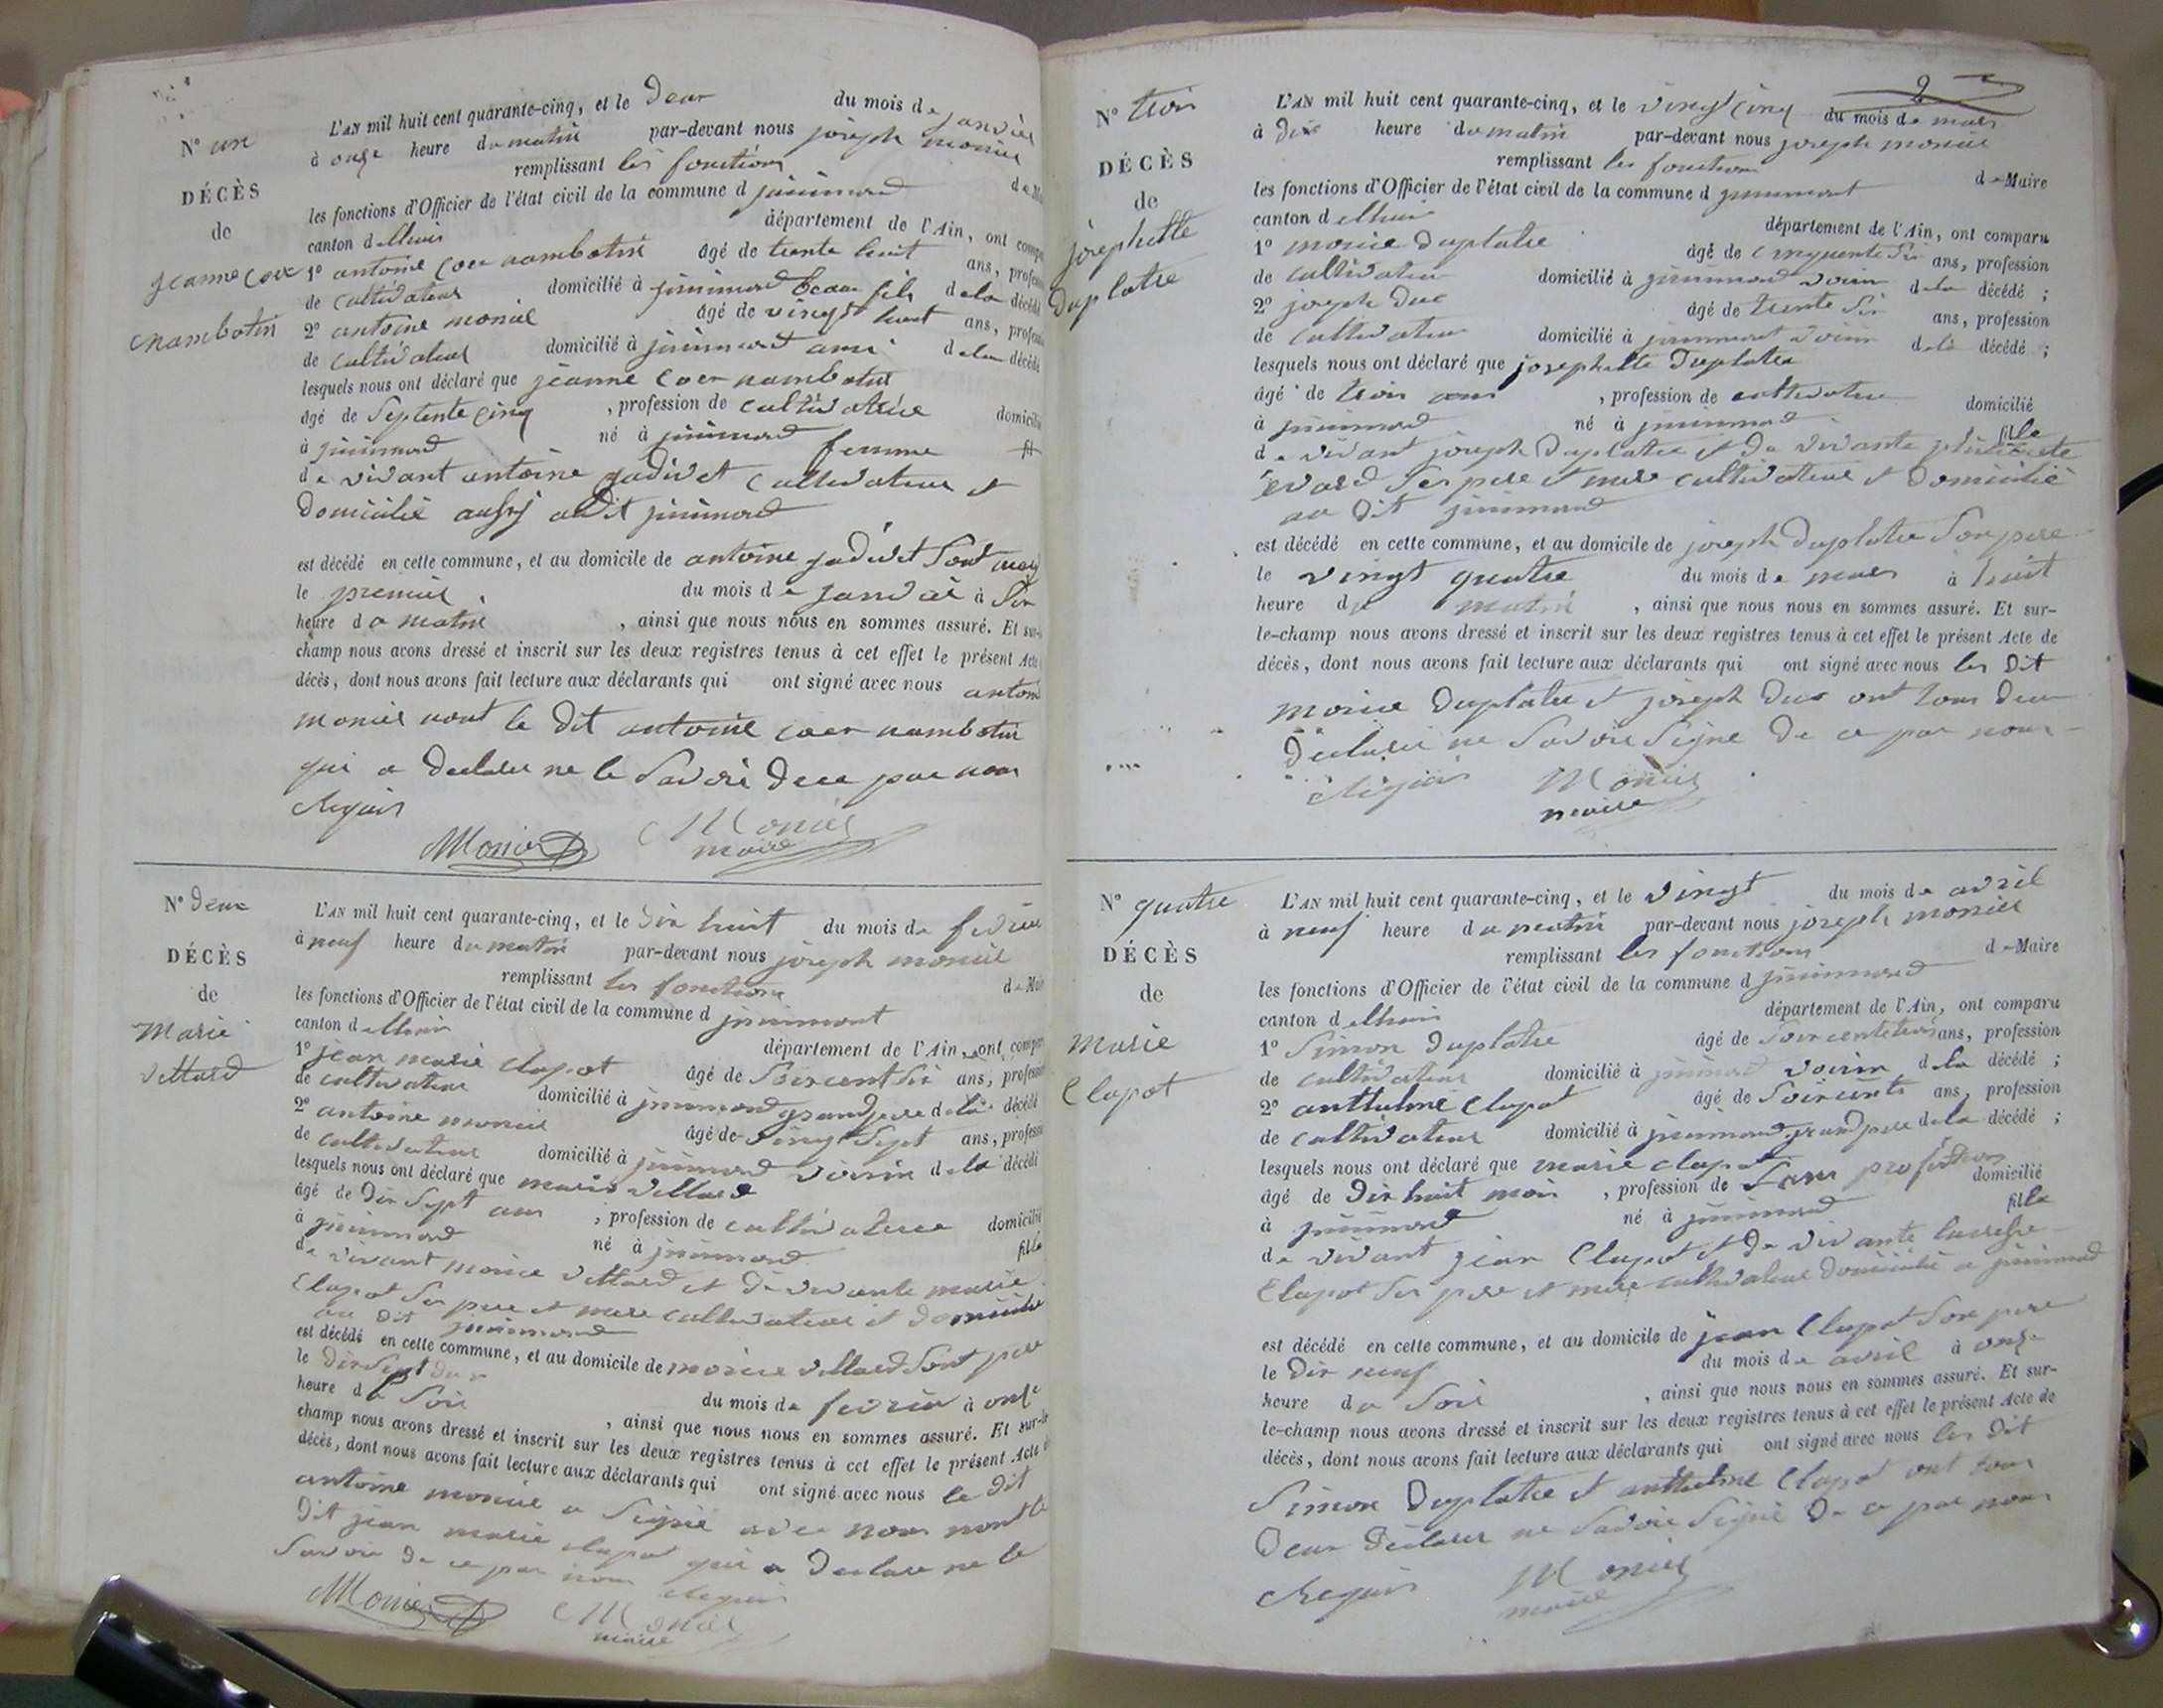 N° un
DÉCÈS
de
jeanne coer
nambotin
L'AN mil huit cent quarante-cinq, et le Deux du mois de janvier
à onze heure du matin par-devant nous joseph monier
remplissant les fonctions de
les fonctions d'Officier de l'état civil de la commune d jinimond
canton d lhuis département de l'Ain, ont
1° antoine coer nambotin âgé de trente huit ans,
de cultivateur domicilié à jinimond beau fils de la décédé
2° antoine monier âgé de vingt huit ans,
de cultivateur domicilié à jinimond ami de la décédé
lesquels nous ont déclaré que jeanne coer nambotin
âgé de Septente cinq , profession de cultivatrice
à jinimond né à jinimond femme
de vivant antoine gadivet cultivateur et
Domicilié aussj au Dit jinimond
est décédé en cette commune, et au domicile de antoine gadivet Sont
le premier du mois de janvier à Six
heure du matin , ainsi que nous nous en sommes assuré. Et
champ nous avons dressé et inscrit sur les deux registres tenus à cet effet le présent Acte
décès, dont nous avons fait lecture aux déclarants qui ont signé avec nous
monier nont le Dit antoine coer nambotin
qui a Declarer ne le Savoir Dece par nous
Requis
Monier Monier
maire
N° Deux
DÉCÈS
de
Marie
Villard
L'AN mil huit cent quarante-cinq, et le Dix huit du mois de
à neuf heure du matin par-devant nous joseph monier
remplissant les fonctions de
les fonctions d'Officier de l'état civil de la commune d jinimont
canton d lhuis
département de l'Ain, ont
1° jean marie clapot âgé de Soixent Six ans,
de cultivateur domicilié à jinimond grand pere de la décédé
2° antoine monier âgé de vingt Sept ans,
de cultivateur domicilié à jinimond voisin de la décédé
lesquels nous ont déclaré que marie villard
âgé de Dix Sept ans , profession de cultivatrice
à jinimond né à jinimond fille
de vivant morice villard et de vivante marie
Clapot Ses pere et mere cultivateur et
au Dit jinimond
est décédé en cette commune, et au domicile de morice villard Sont pere
le Dix Sept du mois de fevrier à onse
heure du Soir , ainsi que nous nous en sommes assuré. Et
champ nous avons dressé et inscrit sur les deux registres tenus à cet effet le présent Acte
décès, dont nous avons fait lecture aux déclarants qui ont signé avec nous le Dit
antoine monier a Signé avec nous nont le
Dit jean marie clapot qui a Declare ne le
Savoir De ce par nous Requis
Monier Monier
maire
2
N° trois
DÉCÈS
de
josephette
Duplatre
L'AN mil huit cent quarante-cinq, et le vingt cinq du mois de mars
à Dix heure du matin par-devant nous joseph monier
remplissant les fonctions de Maire
les fonctions d'Officier de l'état civil de la commune d jinimont
canton d lhuis département de l'Ain, ont comparu
1° morice Duplatre âgé de cinquente Six ans, profession
de cultivateur domicilié à jinimond voisin de la décédé ;
2° joseph Duc âgé de trente Six ans, profession
de cultivateur domicilié à jinimond voisin de la décédé ;
lesquels nous ont déclaré que josephette Duplatre
âgé de trois ans , profession de cultivateur domicilié
à jinimond né à jinimond fille
de vivant joseph Duplatre et de vivante
Ses pere et mere cultivateur et Domicilié
au Dit jinimond
est décédé en cette commune, et au domicile de joseph Duplatre Son pere
le vingt quatre du mois de mars à huit
heure du matin , ainsi que nous nous en sommes assuré. Et sur-
le-champ nous avons dressé et inscrit sur les deux registres tenus à cet effet le présent Acte de
décès, dont nous avons fait lecture aux déclarants qui ont signé avec nous les Dit
morice Duplatre et joseph Duc ont tous Deux
Declarer ne Savoir Signe De ce par nous
Requis Monier
maire
N° quatre
DÉCÈS
de
Marie
Clapot
L'AN mil huit cent quarante-cinq, et le vingt du mois de avril
à neuf heure du matin par-devant nous joseph monier
remplissant les fonctions de Maire
les fonctions d'Officier de l'état civil de la commune d jinimond
canton d lhuis département de l'Ain, ont comparu
1° Simon Duplatre âgé de Soixente trois ans, profession
de cultivateur domicilié à jinimond voisin de la décédé ;
2° anthelme Clapot âgé de Soixente ans, profession
de cultivateur domicilié à jinimond grand pere de la décédé ;
lesquels nous ont déclaré que marie clapot
âgé de Dix huit mois , profession de Sans profession domicilié
à jinimond né à jinimond fille
de vivant jean Clapot et de vivante
Clapot Ses pere et mere cultivateur Domicilié a jinimond
est décédé en cette commune, et au domicile de jean Clapot Son pere
le Dix neuf du mois de avril à onze
heure du Soir , ainsi que nous nous en sommes assuré. Et sur-
le-champ nous avons dressé et inscrit sur les deux registres tenus à cet effet le présent Acte de
décès, dont nous avons fait lecture aux déclarants qui ont signé avec nous les Dit
Simon Duplatre et anthelme Clapot ont tous
Deux Declarer ne Savoir Signé De ce par nous
Requis Monier
maire